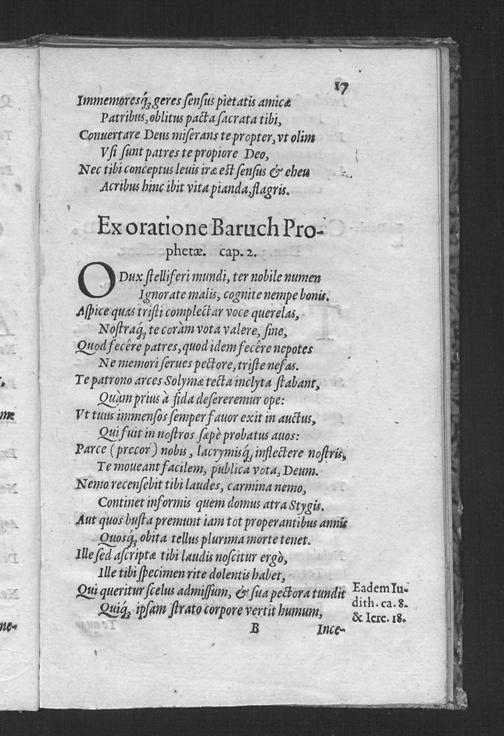 17
Immemoresq́; geres sensus pietatis amicæ
Patribus, oblitus pacta sacrata tibi,
Convertare Deus miserans te propter, vt olim
Vsi sunt patres te propiore Deo,
Nec tibi conceptus leuis iræ est sensus & eheu
Acribus hinc ibit vita pianda, flagris.
Ex oratione Baruch Pro-
phetæ. cap. 2.
O Dux stelliferi mundi, ter nobile numen
Ignorate malis, cognite nempe bonis.
Aspice quas tristi complectar voce querelas,
Nostraq́; te coràm vota valere, sine,
Quod fecêre patres, quod idem fecêre nepotes
Ne memori serues pectore, triste nefas.
Te patrono arces Solymæ tecta inclyta stabant,
Quàm prius à fida desereremur ope:
Vt tuus immensos semper fauor exit in auctus,
Qui fuit in nostros sæpè probatus auos:
Parce (precor) nobis, lacrymisq́; inflectere nostris,
Te moueant facilem, publica vota, Deum.
Nemo recensebit tibi laudes, carmina nemo,
Continet informis quem domus atra Stygis.
Aut quos busta premunt iam tot properantibus annis
Quosq́; obita tellus plurima morte tenet.
Ille sed ascriptæ tibi laudis noscitur ergò,
Ille tibi specimen rite dolentis habet,
Qui queritur scelus admissum, & sua pectora tundit
Quiq́; ipsam strato corpore vertit humum,
Eadem Iu-
dith. ca. 8.
& Iere. 18.
B Ince-